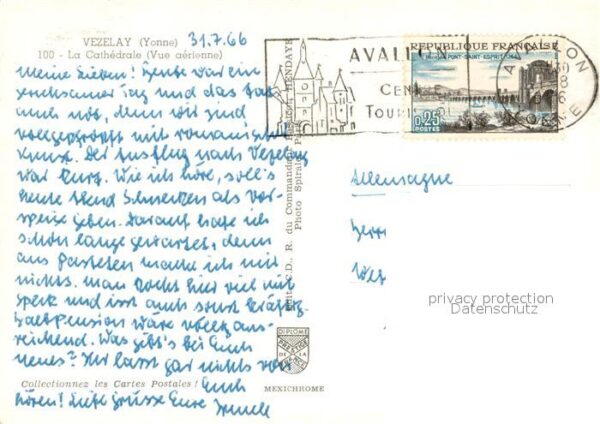 VEZELAY (Yonne) 31.7.66
100 - La Cathédrale (Vue aérienne)
Meine Lieben! Heute war ein
geruhsamer Tag und das tat
auch not, denn wir sind
vollgepfropft mit romanischer
Kunst. Der Ausflug nach Vezelay
war kurz. Wie ich höre, soll's
heute Abend Schnecken als Vor-
speise geben. Darauf habe ich
schon lange gewartet, denn
aus Pasteten mache ich mir
nichts. Man kocht hier viel mit
Speck und isst auch sonst kräftig.
Halbpension wäre völlig aus-
reichend. Was gibt's bei Euch
neues? Ihr lasst gar nichts von
Collectionnez les Cartes Postales! Euch
hören! Liebe Grüsse Eure
R. du Commandant HENDAYE
Photo
DIPLÔME
PRESTIGE
DE LA
FRANCE
MEXICHROME
AVALLON
CEN
TOUR
REPUBLIQUE FRANÇAISE
PONT SAINT ESPRIT
0,25
POSTES
AVALLON
YONNE
Allemagne
Herr
privacy protection
Datenschutz